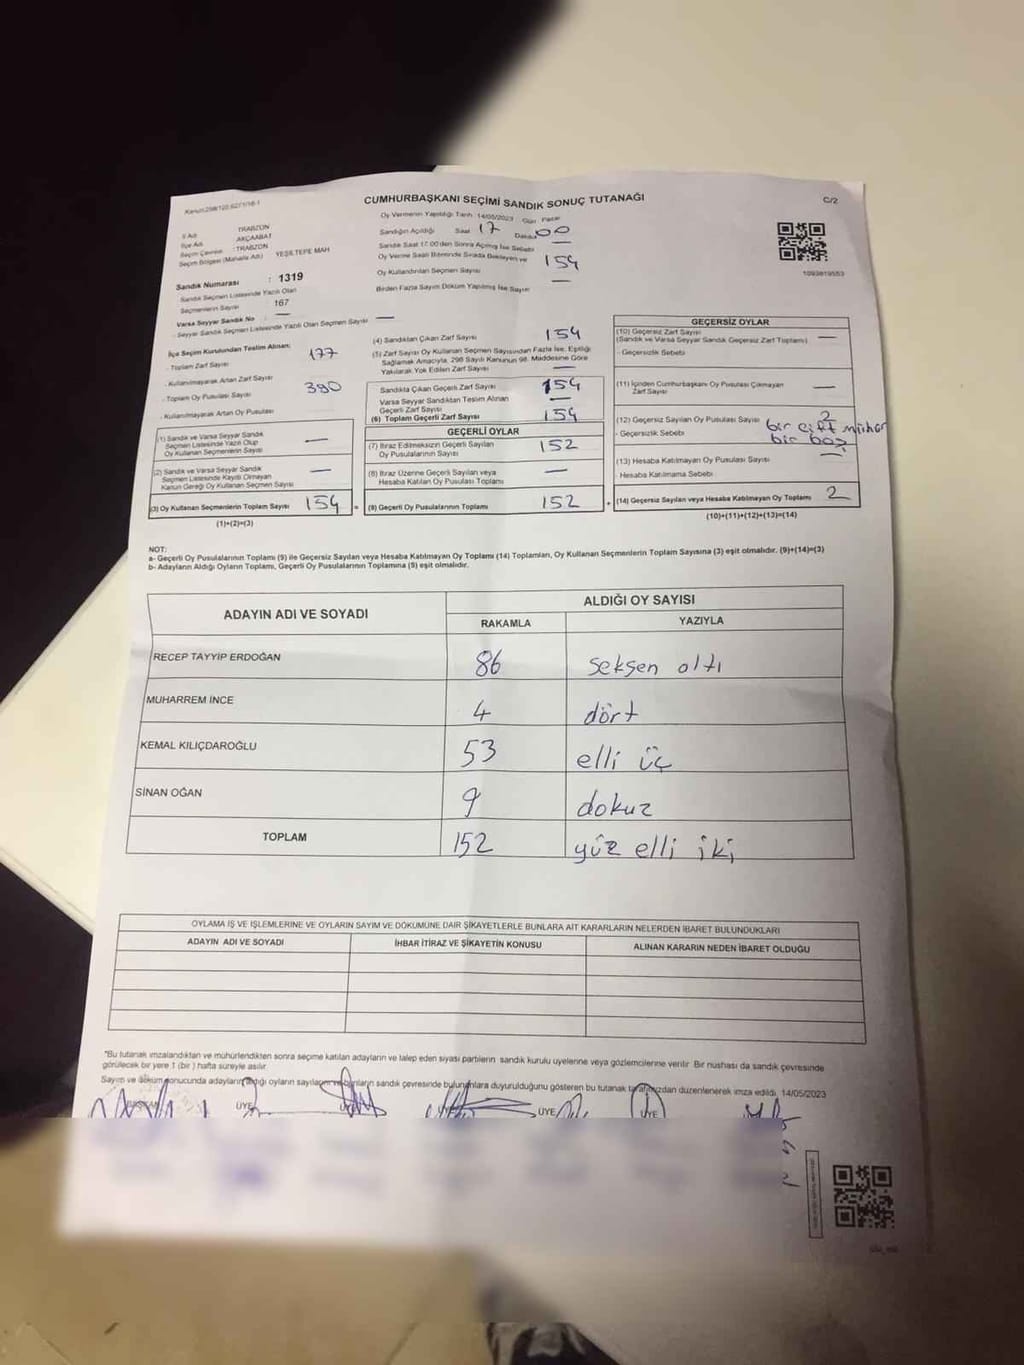 CUMHURBAŞKANI SEÇİMİ SANDIK SONUÇ TUTANAĞI
C/2
Oy Vermenin Yapıldığı Tarih 14/05/2023 Gün Pazar
İl Adı TRABZON
İlçe Adı AKÇAABAT
Seçim Çevresi : TRABZON
Seçim Bölgesi (Mahalle Adı) YEŞİLTEPE MAH
Sandığın Açıldığı Saat 17 Dakika 00
Sandık Saat 17.00'den Sonra Açılmış İse Sebebi —
Oy Verme Saati Bitiminde Sırada Bekleyen ve
Oy Kullandırılan Seçmen Sayısı 154
Birden Fazla Sayım Döküm Yapılmış İse Sayısı —
1093819553
Sandık Numarası : 1319
Sandık Seçmen Listesinde Yazılı Olan
Seçmenlerin Sayısı 167
Varsa Seyyar Sandık No —
- Seyyar Sandık Seçmen Listesinde Yazılı Olan Seçmen Sayısı —
İlçe Seçim Kurulundan Teslim Alınan:
- Toplam Zarf Sayısı 177
- Kullanılmayarak Artan Zarf Sayısı
- Toplam Oy Pusulası Sayısı 390
- Kullanılmayarak Artan Oy Pusulası
(1) Sandık ve Varsa Seyyar Sandık
Seçmen Listesinde Yazılı Olup
Oy Kullanan Seçmenlerin Sayısı —
(2) Sandık ve Varsa Seyyar Sandık
Seçmen Listesinde Kayıtlı Olmayan
Kanun Gereği Oy Kullanan Seçmen Sayısı —
(3) Oy Kullanan Seçmenlerin Toplam Sayısı 154 =
(1)+(2)=(3)
(4) Sandıktan Çıkan Zarf Sayısı 154
(5) Zarf Sayısı Oy Kullanan Seçmen Sayısından Fazla İse, Eşitliği
Sağlamak Amacıyla, 298 Sayılı Kanunun 98. Maddesine Göre
Yakılarak Yok Edilen Zarf Sayısı —
Sandıkta Çıkan Geçerli Zarf Sayısı 154
Varsa Seyyar Sandıktan Teslim Alınan
Geçerli Zarf Sayısı —
(6) Toplam Geçerli Zarf Sayısı 154
GEÇERLİ OYLAR
(7) İtiraz Edilmeksizin Geçerli Sayılan
Oy Pusulalarının Sayısı 152
(8) İtiraz Üzerine Geçerli Sayılan veya
Hesaba Katılan Oy Pusulası Toplamı —
(9) Geçerli Oy Pusulalarının Toplamı 152 +
GEÇERSİZ OYLAR
(10) Geçersiz Zarf Sayısı
(Sandık ve Varsa Seyyar Sandık Geçersiz Zarf Toplamı) —
- Geçersizlik Sebebi
(11) İçinden Cumhurbaşkanı Oy Pusulası Çıkmayan
Zarf Sayısı —
(12) Geçersiz Sayılan Oy Pusulası Sayısı 2
- Geçersizlik Sebebi bir çift mühür
bir boş
(13) Hesaba Katılmayan Oy Pusulası Sayısı —
- Hesaba Katılmama Sebebi
(14) Geçersiz Sayılan veya Hesaba Katılmayan Oy Toplamı 2
(10)+(11)+(12)+(13)=(14)
NOT:
a- Geçerli Oy Pusulalarının Toplamı (9) ile Geçersiz Sayılan veya Hesaba Katılmayan Oy Toplamı (14) Toplamları, Oy Kullanan Seçmenlerin Toplam Sayısına (3) eşit olmalıdır. (9)+(14)=(3)
b- Adayların Aldığı Oyların Toplamı, Geçerli Oy Pusulalarının Toplamına (9) eşit olmalıdır.
ADAYIN ADI VE SOYADI ALDIĞI OY SAYISI
RAKAMLA YAZIYLA
RECEP TAYYİP ERDOĞAN 86 seksen altı
MUHARREM İNCE 4 dört
KEMAL KILIÇDAROĞLU 53 elli üç
SİNAN OĞAN 9 dokuz
TOPLAM 152 yüz elli iki
OYLAMA İŞ VE İŞLEMLERİNE VE OYLARIN SAYIM VE DÖKÜMÜNE DAİR ŞİKAYETLERLE BUNLARA AİT KARARLARIN NELERDEN İBARET BULUNDUKLARI
ADAYIN ADI VE SOYADI İHBAR İTİRAZ VE ŞİKAYETİN KONUSU ALINAN KARARIN NEDEN İBARET OLDUĞU
"Bu tutanak imzalandıktan ve mühürlendikten sonra seçime katılan adayların ve talep eden siyasi partilerin sandık kurulu üyelerine veya gözlemcilerine verilir. Bir nüshası da sandık çevresinde
görülecek bir yere 1 (bir) hafta süreyle asılır
Sayım ve döküm sonucunda adayların aldığı oyların sayıları bunların sandık çevresinde bulunanlara duyurulduğunu gösteren bu tutanak tarafımızdan düzenlenerek imza edildi. 14/05/2023
BAŞKAN ÜYE ÜYE ÜYE ÜYE